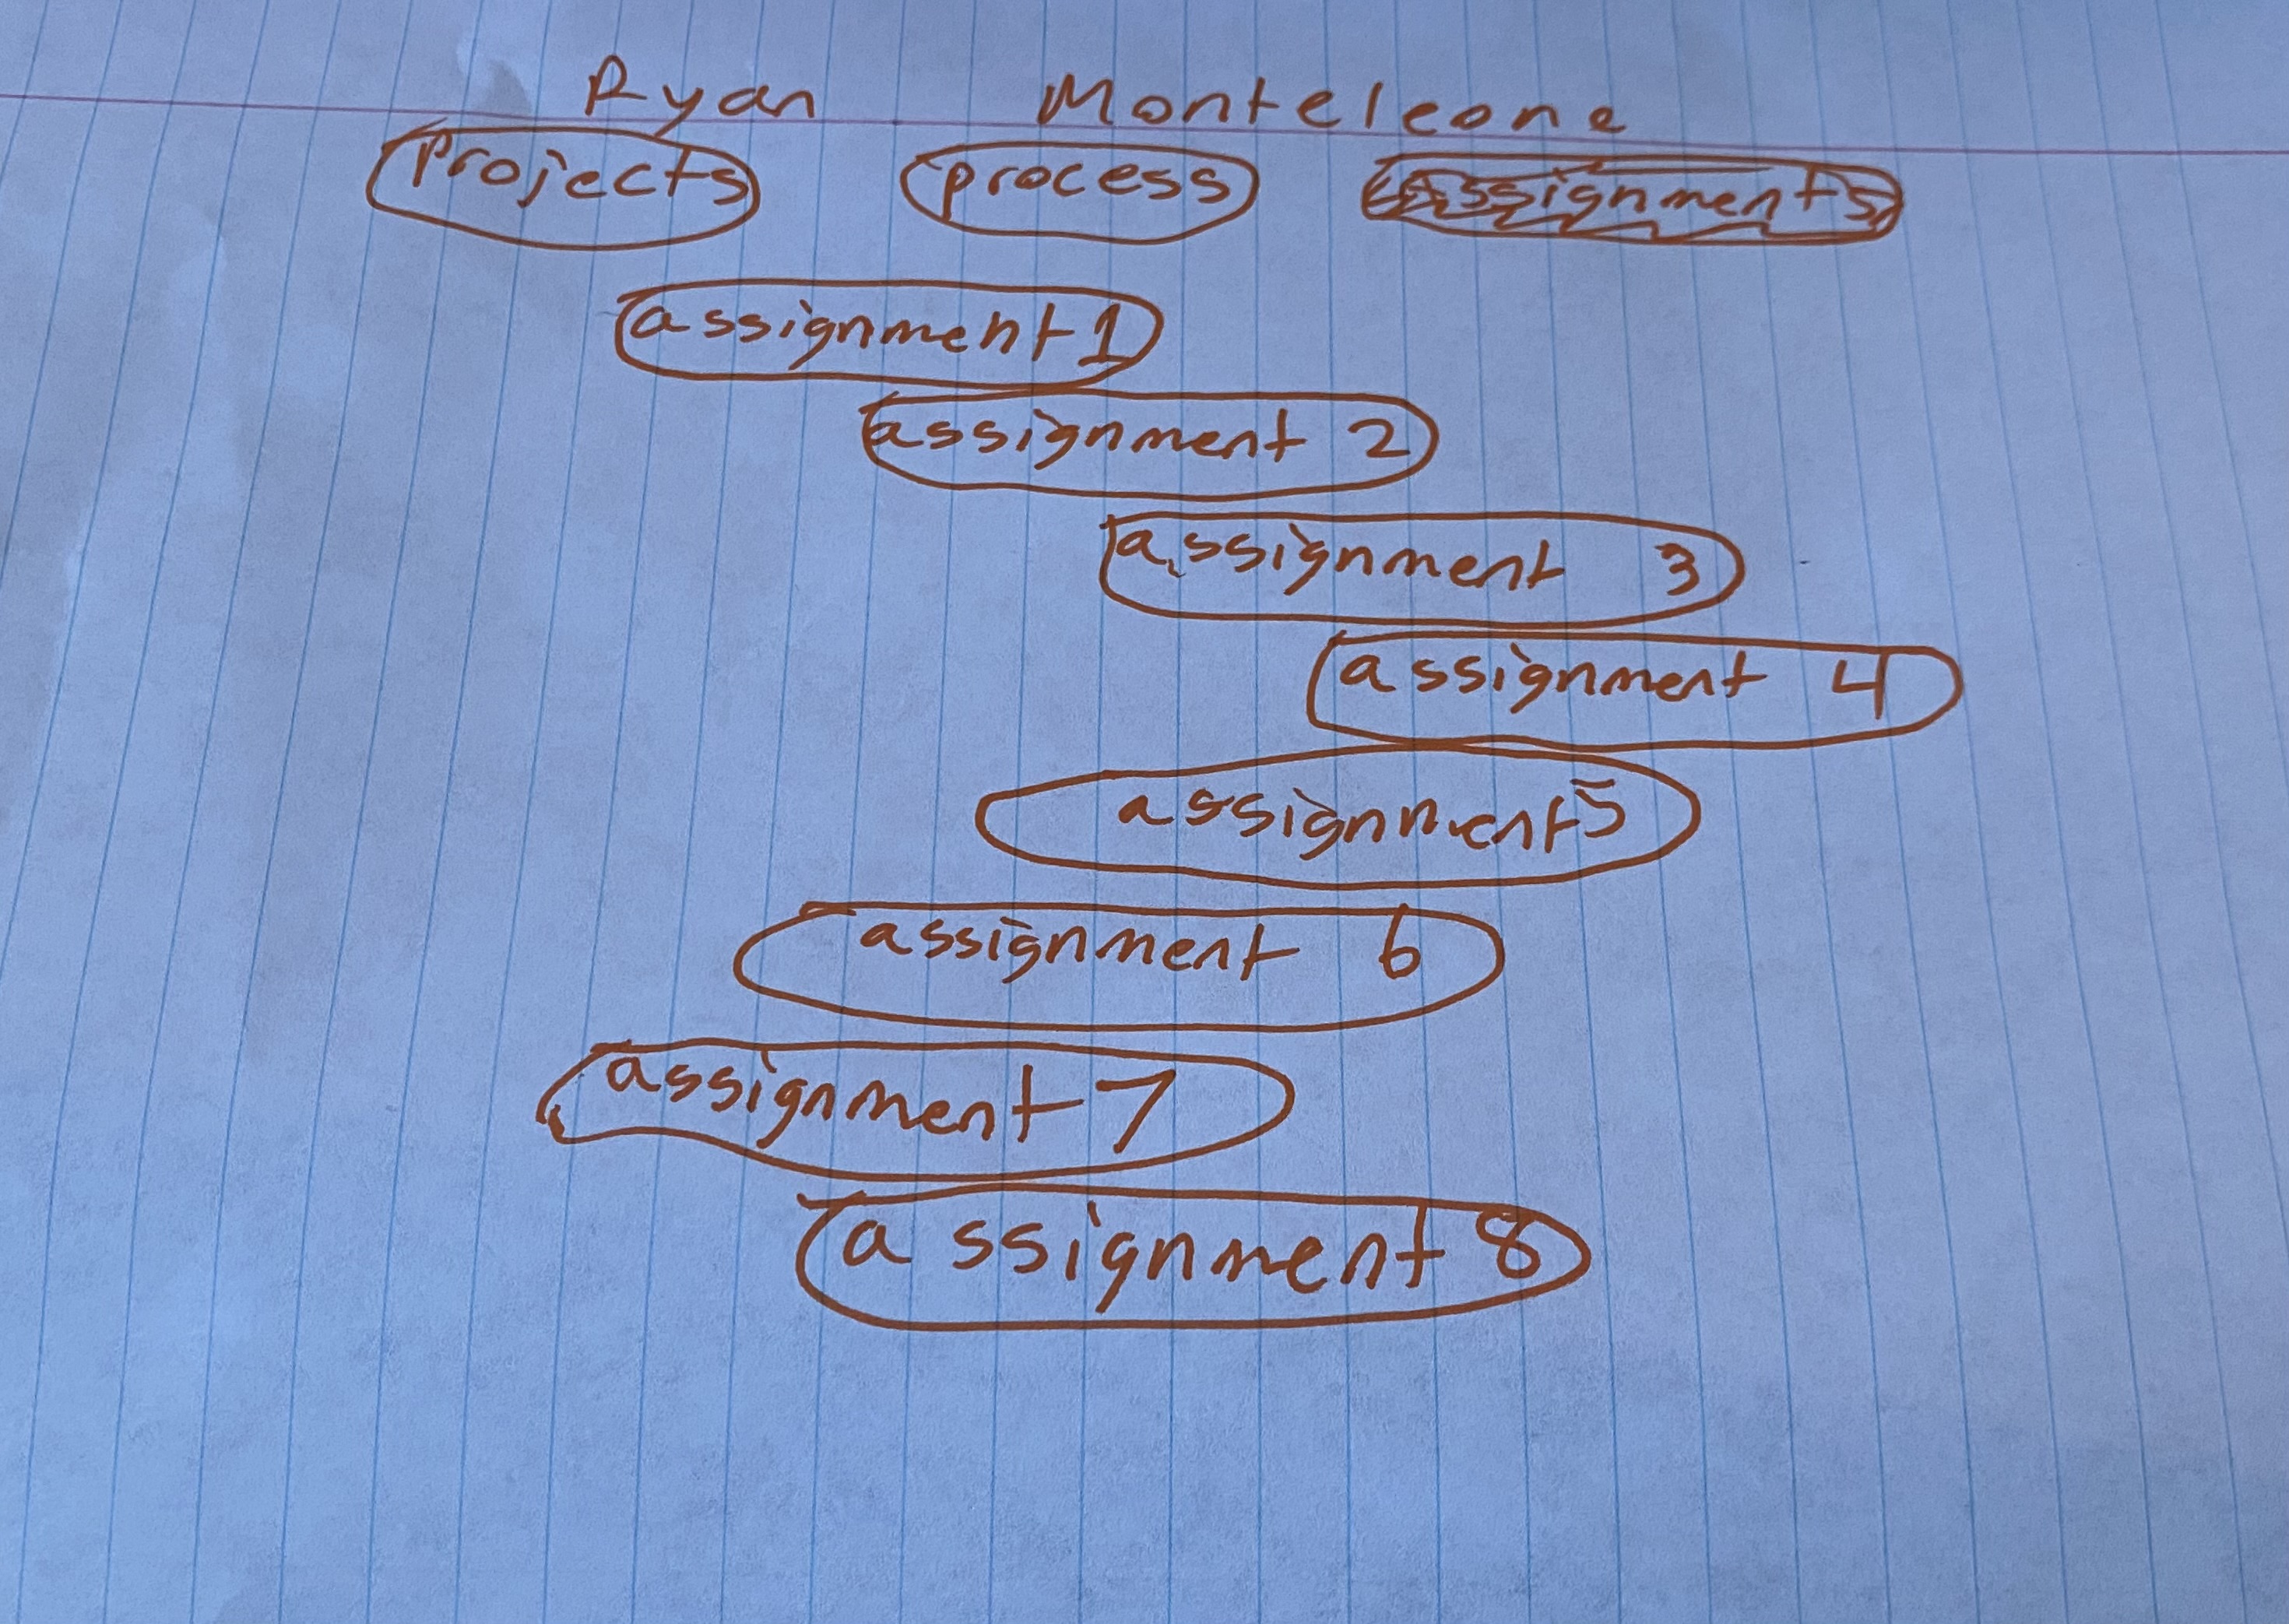 Ryan Monteleone
Projects process assignments
assignment 1
assignment 2
assignment 3
assignment 4
assignment 5
assignment 6
assignment 7
assignment 8